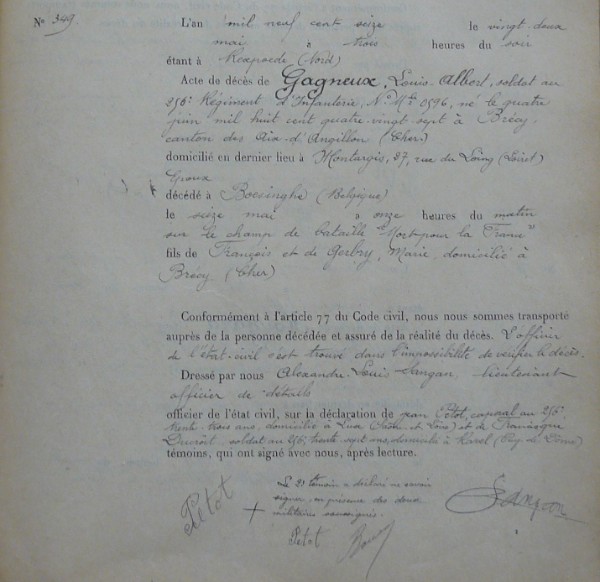 N° 349.
L'an mil neuf cent seize le vingt deux
mai à trois heures du soir
étant à Rexpoede (Nord)
Acte de décès de Gagneux, Louis Albert, soldat au
256e Régiment d'Infanterie, N° Mle 0596, né le quatre
juin mil huit cent quatre-vingt sept à Brécy
canton des Aix-d'Angillon (Cher)
domicilié en dernier lieu à Montargis, 27, rue du Loing (Loiret)
époux
décédé à Boesinghe (Belgique)
le seize mai à onze heures du matin
sur le champ de bataille "Mort pour la France"
fils de François et de Gerbry, Marie, domicilié à
Brécy (Cher)
Conformément à l'article 77 du Code civil, nous nous sommes transporté
auprès de la personne décédée et assuré de la réalité du décès. L'officier
de l'état-civil s'est trouvé dans l'impossibilité de vérifier le décès.
Dressé par nous Alexandre Louis Sangan, lieutenant
officier de détails
officier de l'état civil, sur la déclaration de Jean Petot, caporal au 256e
trente-trois ans, domicilié à Lux (Saône et Loire) et de
soldat au 256, trente-sept ans, domicilié à (Puy de Dôme)
témoins, qui ont signé avec nous, après lecture.
Le 2e témoin a déclaré ne savoir
signer, en présence des deux
militaires soussignés.
Petot
Petot